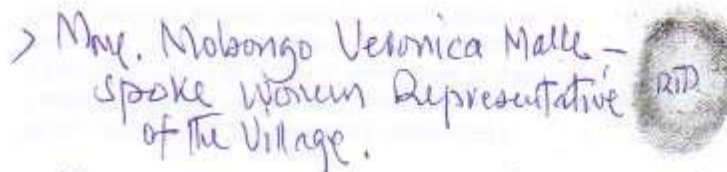 > Mme. Mobongo Veronica Malle –
spoke women Representative
of the Village.
RTD